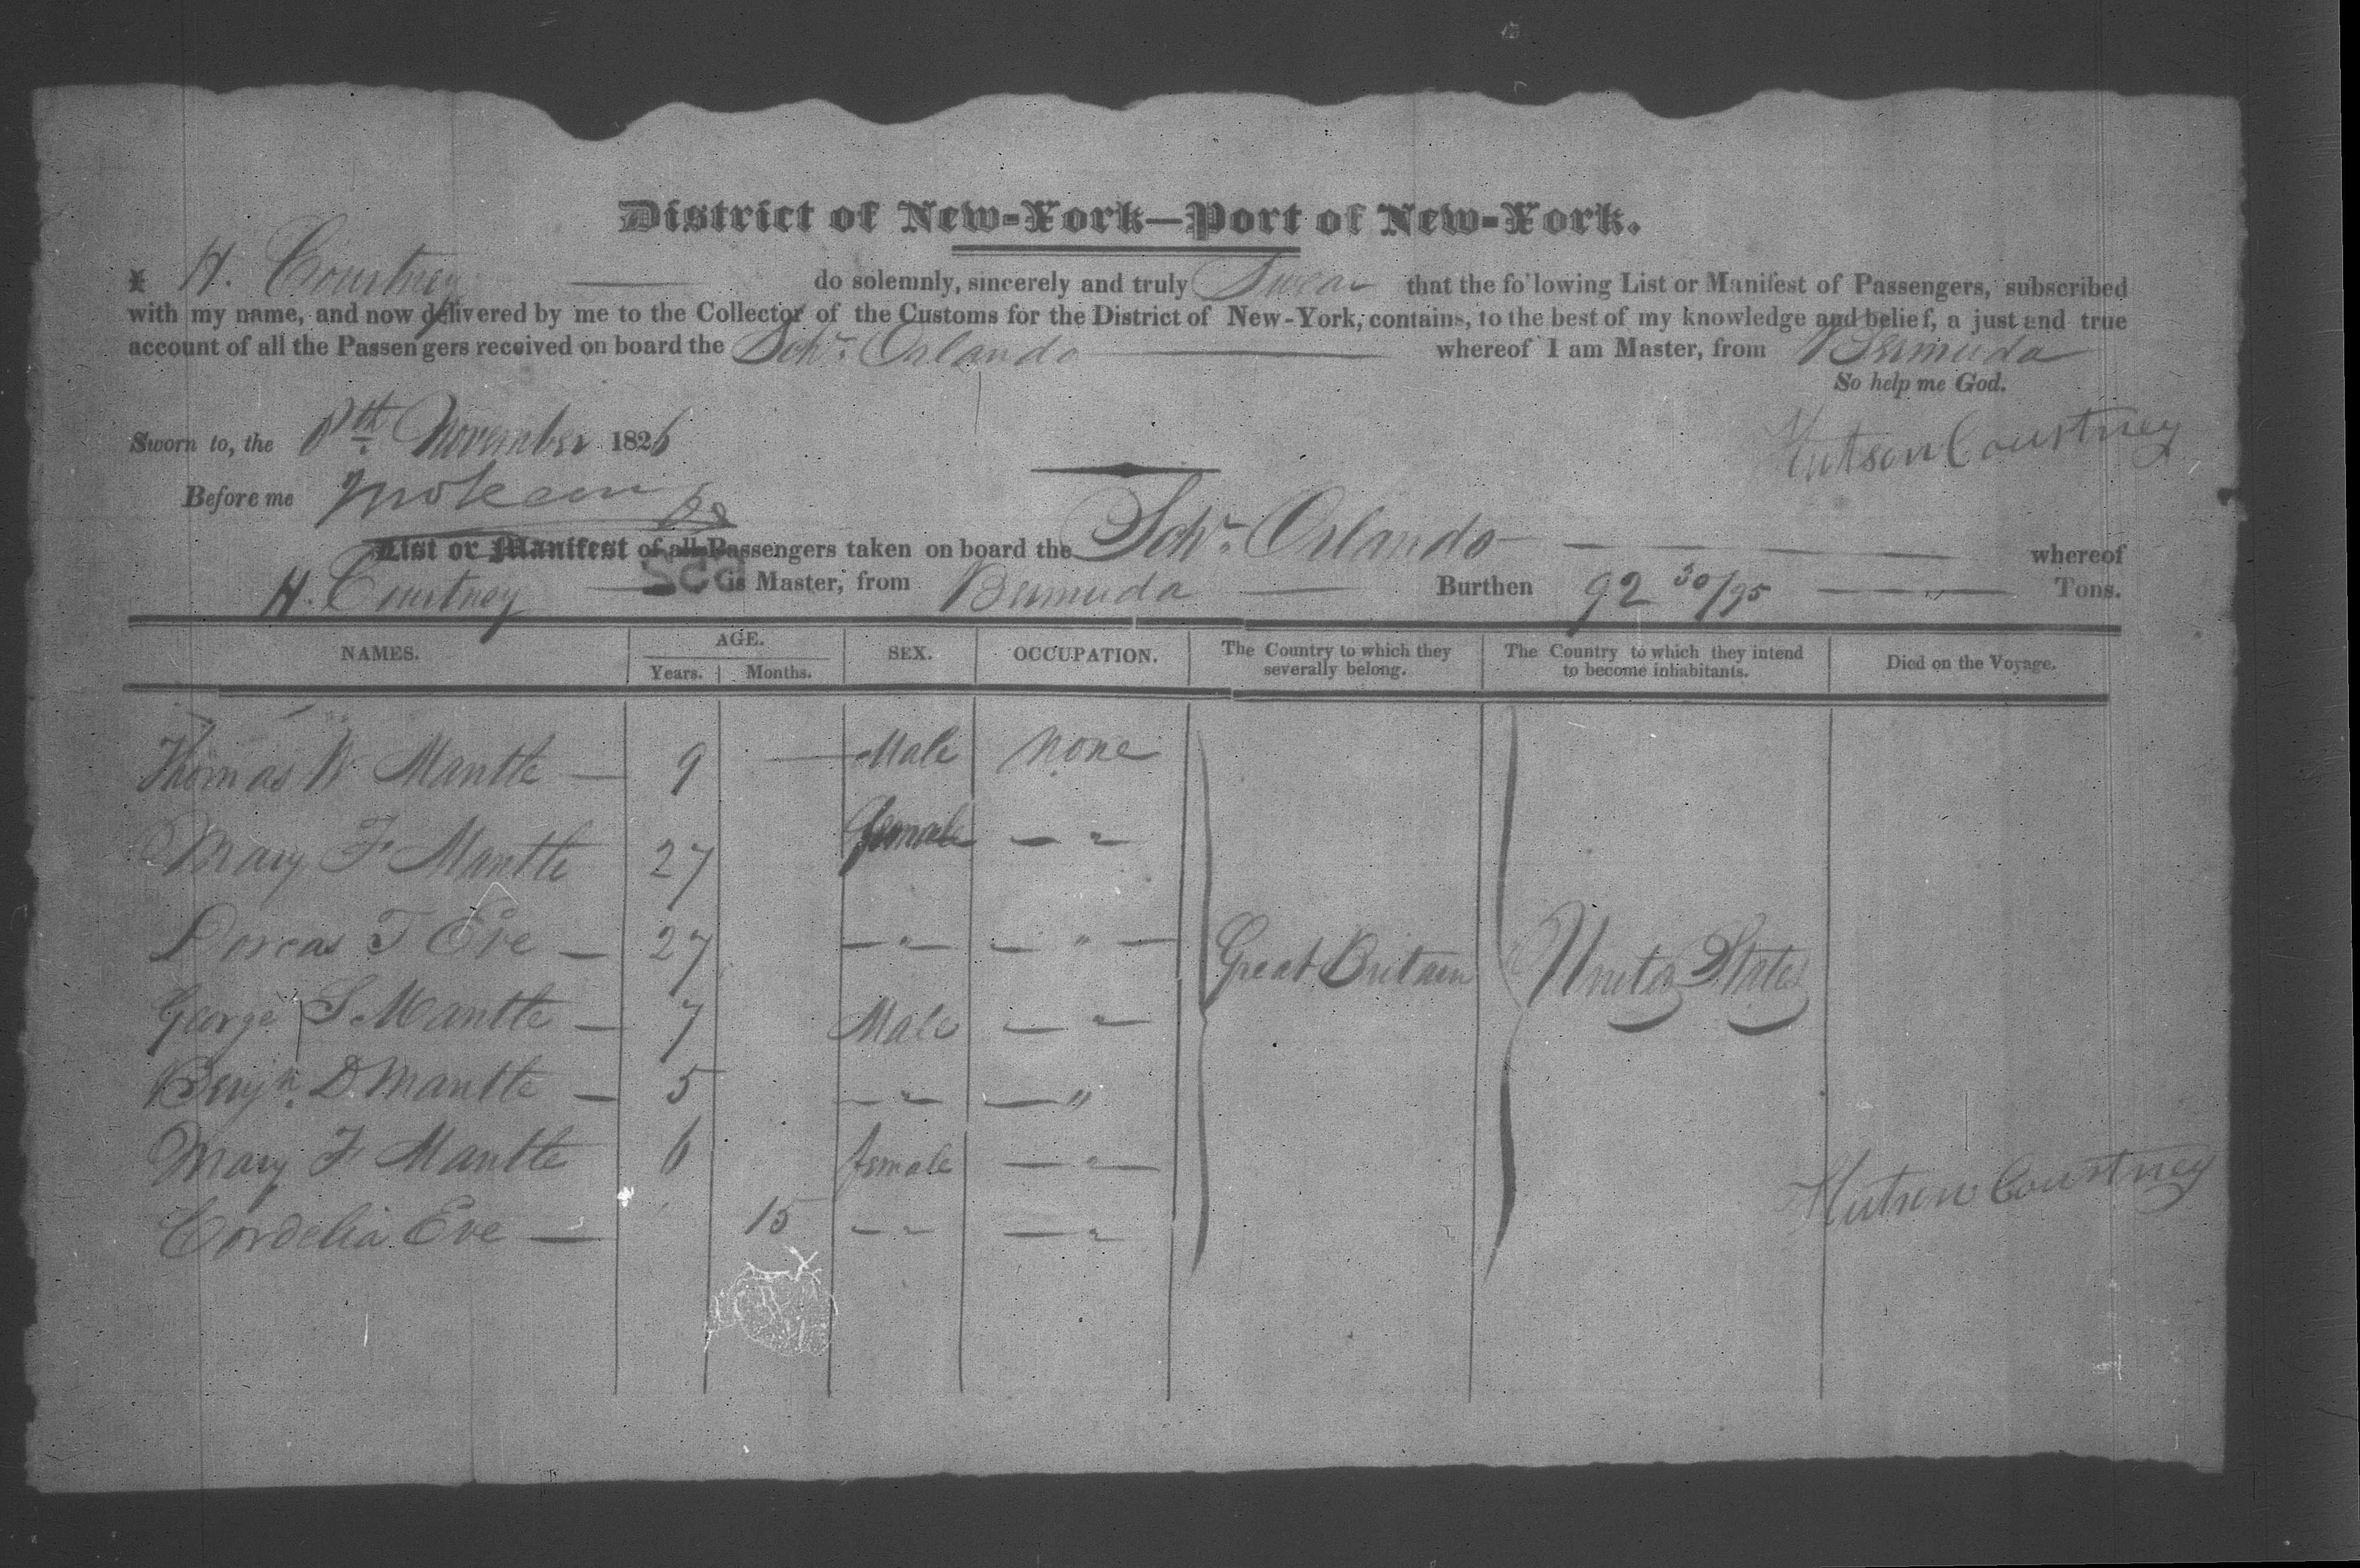 District of New-York—Port of New-York.
I H. Courtney do solemnly, sincerely and truly Swear that the fo'lowing List or Manifest of Passengers, subscribed
with my name, and now delivered by me to the Collector of the Customs for the District of New-York, contains, to the best of my knowledge and belief, a just and true
account of all the Passengers received on board the Schr. Orlando whereof I am Master, from Bermuda
So help me God.
Sworn to, the 8th November 1826
Hutson Courtney
Before me
List or Manifest of all Passengers taken on board the Schr. Orlando whereof
H. Courtney is Master, from Bermuda Burthen 92 30/95 Tons.
NAMES. AGE. Years. Months. SEX. OCCUPATION. The Country to which they severally belong. The Country to which they intend to become inhabitants. Died on the Voyage.
Thomas W Mantle — 9 — Male none
Mary F Mantle 27 female — "
Dorcas T Eve — 27 — " — — " —
Great Britain United States
George S Mantle — 7 Male — " —
Benjn. D Mantle — 5 — " — — "
Mary F Mantle 6 female — " —
Cordelia Eve — 15 — " — — "
Hutson Courtney